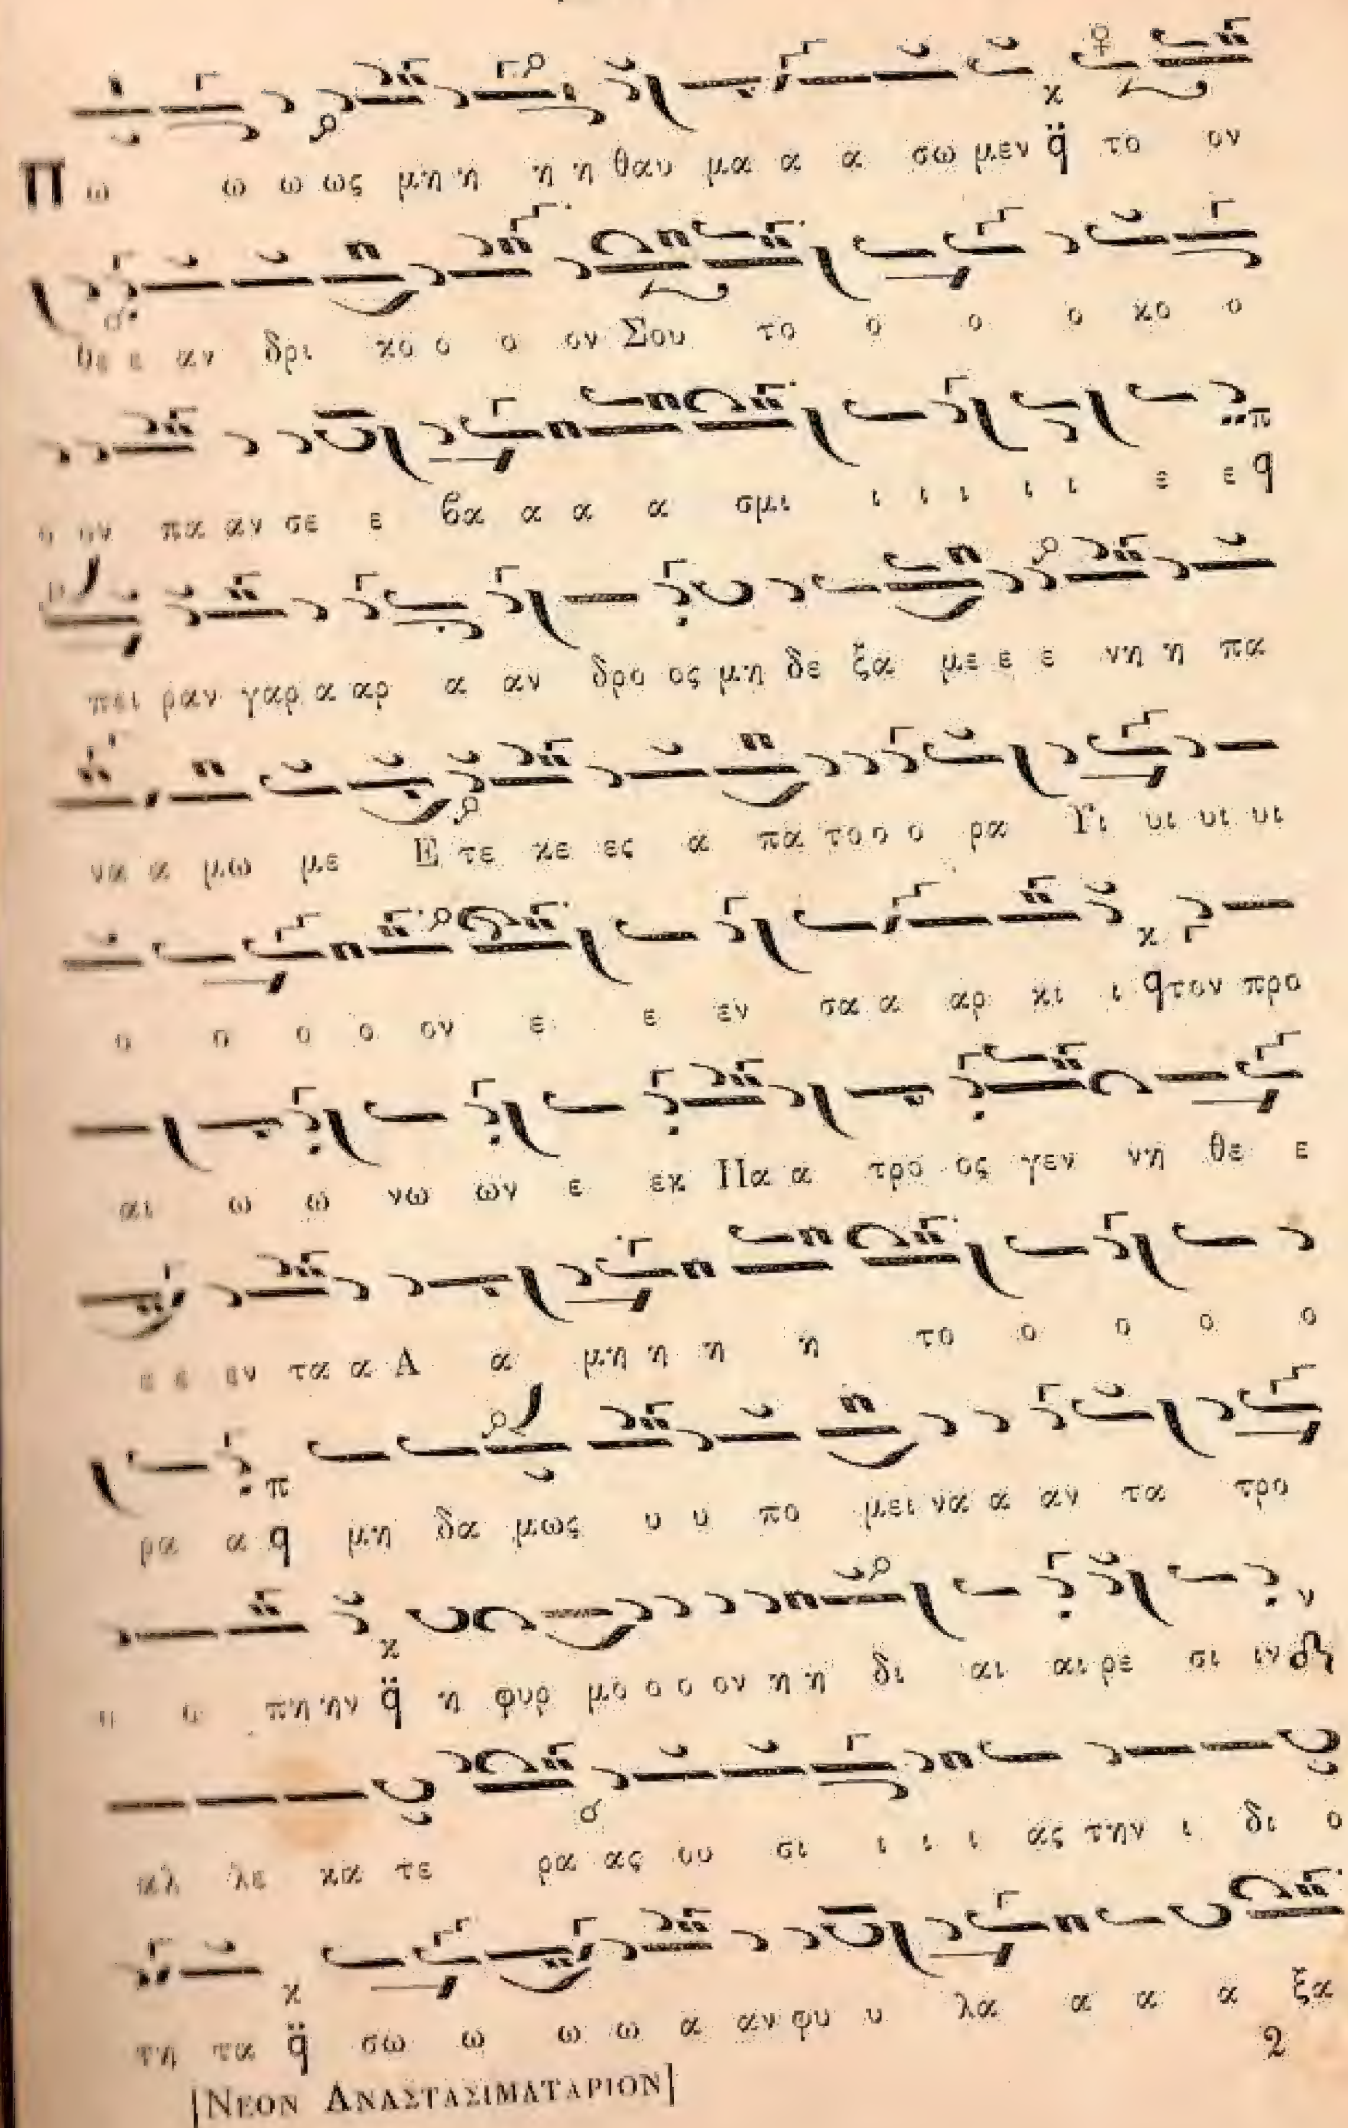 Πω ω ω ως μη η η η θαυ μα α α σω μεν q̈ το ον
θε ε αν δρι κο ο ο ον Σου το ο ο ο κο ο
ο ον πα αν σε ε βα α α α σμι ι ι ι ι ι ε ε q
πει ραν γαρ α αρ α αν δρο ος μη δε ξα με ε ε νη η πα
να α μω με Ε τε κε ες α πα το ο ο ρα Υι υι υι υι
ο ο ο ο ον ε ε εν σα α αρ κι ι q τον προ
αι ω ω νω ων ε εκ Πα α τρο ος γεν νη θε ε
ε ε εν τα α Α α μη η η η το ο ο ο ο
ρα α q μη δα μως υ υ πο μει να α αν τα τρο
ο ο πη ην q̈ η φυρ μο ο ο ον η η δι αι αι ρε σι ιν
αλ λε κα τε ρα ας ου σι ι ι ι ας την ι δι ο
τη τα q̈ σω ω ω ω α αν φυ υ λα α α α ξα
2
[ΝΕΟΝ ΑΝΑΣΤΑΣΙΜΑΤΑΡΙΟΝ]